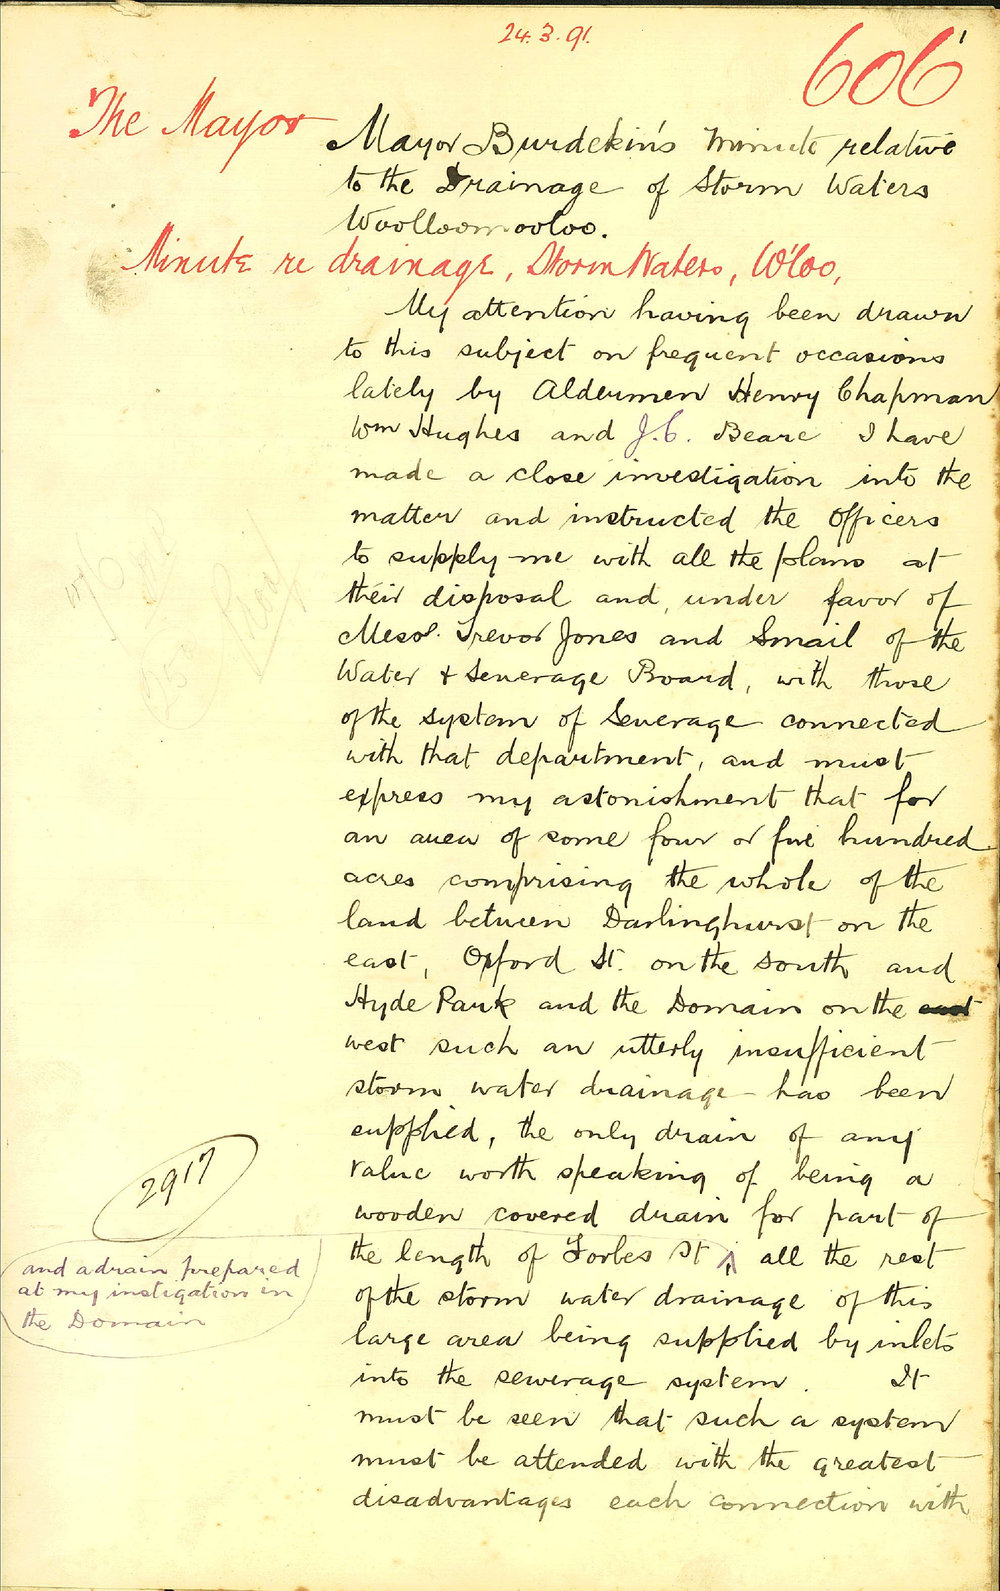 24.3.91.
606
1
The Mayor
Mayor Burdekin's Minute relative
to the Drainage of Storm Waters
Woolloomooloo.
Minute re drainage, Storm Waters, W'loo,
My attention having been drawn
to this subject on frequent occasions
lately by Aldermen Henry Chapman
Wm Hughes and J.C. Beare I have
made a close investigation into the
matter and instructed the Officers
to supply me with all the plans at
their disposal and, under favor of
Messrs. Trevor Jones and Smail of the
Water & Sewerage Board, with those
of the system of Sewerage connected
with that department, and must
express my astonishment that for
an area of some four or five hundred
acres comprising the whole of the
land between Darlinghurst on the
east, Oxford St. on the South and
Hyde Park and the Domain on the east
west such an utterly insufficient
storm water drainage has been
supplied, the only drain of any
value worth speaking of being a
wooden covered drain for part of
the length of Forbes St ʌ all the rest
of the storm water drainage of this
large area being supplied by inlets
into the sewerage system. It
must be seen that such a system
must be attended with the greatest
disadvantages each connection with
2917
and a drain prepared
at my instigation in
the Domain